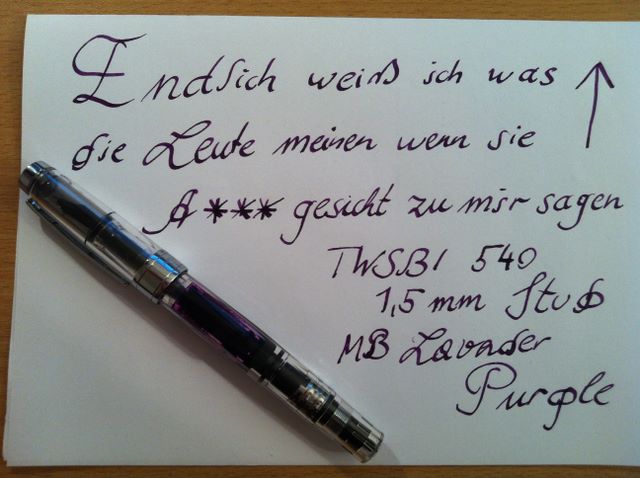 Endlich weiß ich was
die Leute meinen wenn sie
A*** gesicht zu mir sagen
TWSBI 540
1,5 mm Stub
MB Lavender
Purple